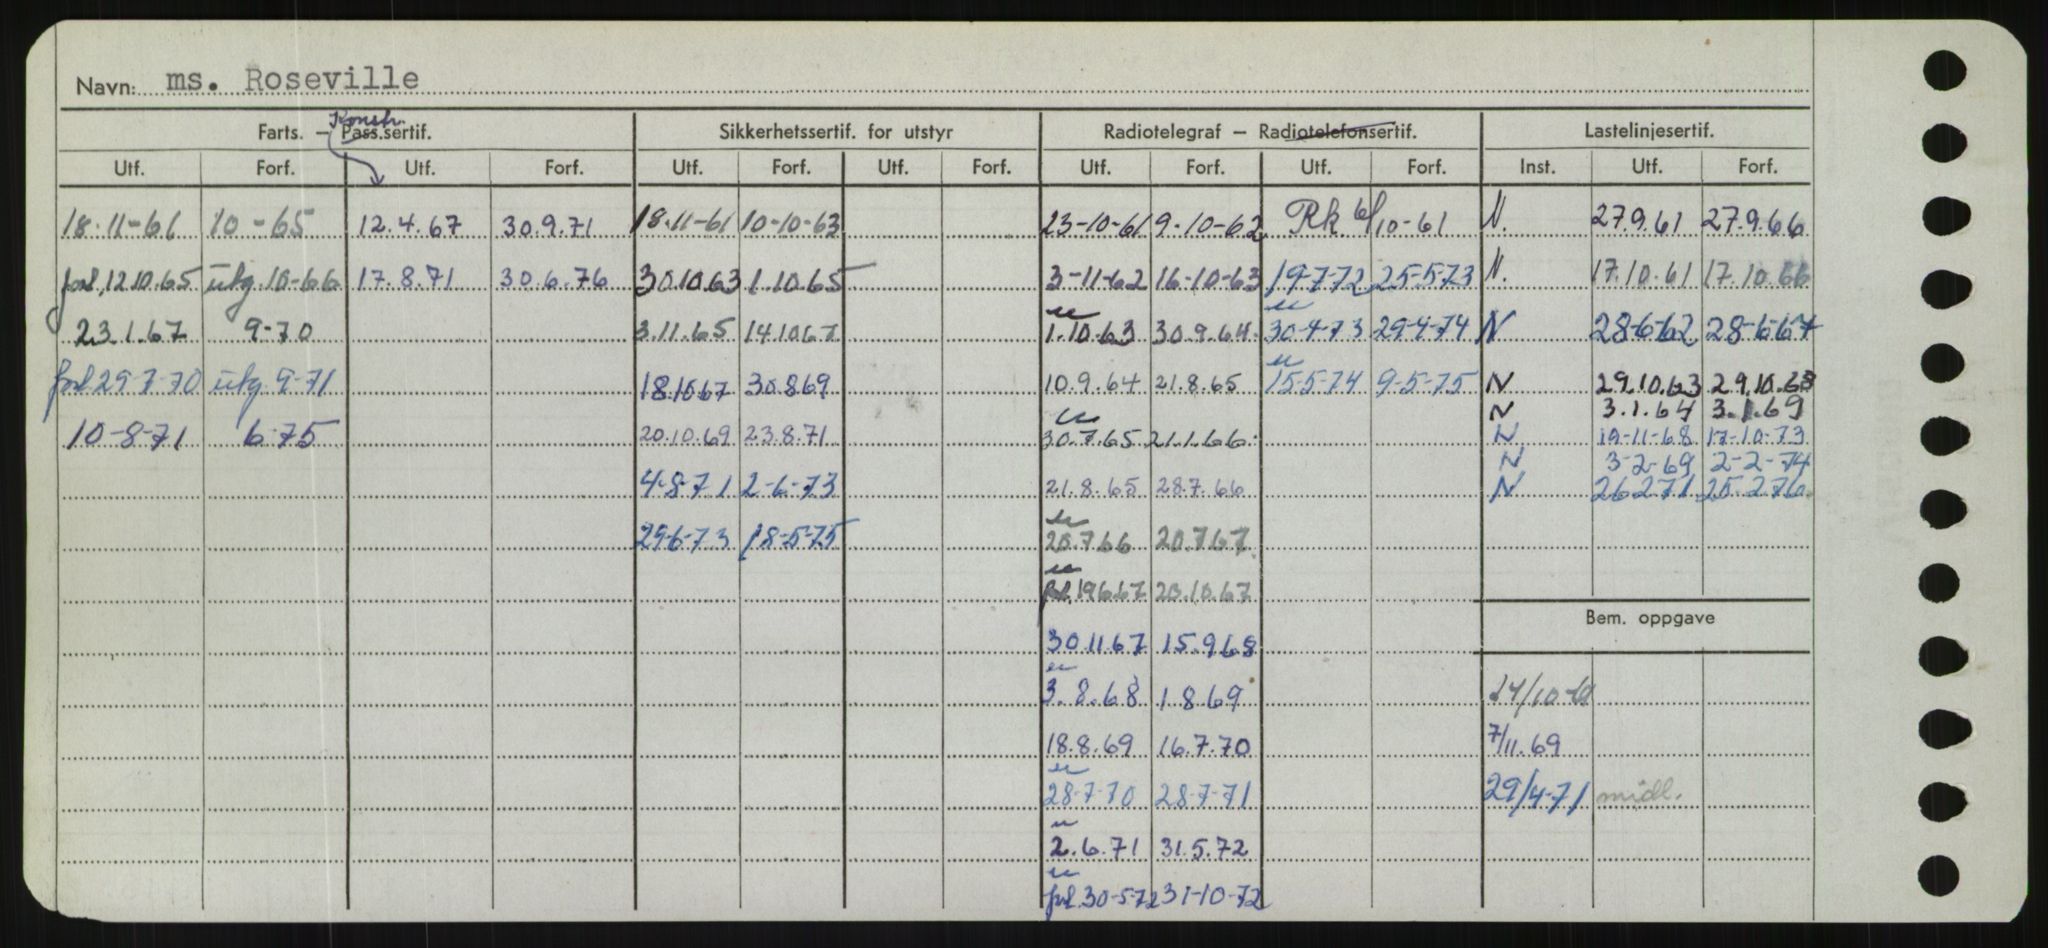 Navn: ms. Roseville
Konstr.
Farts. – Pass.sertif. Sikkerhetssertif. for utstyr Radiotelegraf – Radiotelefonsertif. Lastelinjesertif.
Utf. Forf. Utf. Forf. Utf. Forf. Utf. Forf. Utf. Forf. Utf. Forf. Inst. Utf. Forf.
18.11-61 10-65 12.4.67 30.9.71 18.11-61 10-10-63 23-10-61 9-10-62 Rk 6/10-61 N. 27.9.61 27.9.66
forl. 12.10.65 utg. 10-66 17.8.71 30.6.76 30.10.63 1.10.65 3-11-62 16-10-63 19-7-72 25-5-73 N. 17.10.61 17.10.66
23.1.67 9-70 3.11.65 14.10.67 1.10.63 30.9.64 30-4-73 29-4-74 N 28-6-62 28-6-67
forl. 29-7-70 utg. 9-71 18.10.67 30.8.69 10.9.64 21.8.65 15-5-74 9-5-75 N 29.10.63 29.10.63
N 3.1.64 3.1.69
10-8-71 6-75 20.10.69 23.8.71 30.7.65 21.1.66 N 19-11-68 17-10-73
N 3-2-69 2-2-74
4-8-71 2-6-73 21.8.65 28.7.66 N 26-2-71 25-2-76
29-6-73 18-5-75 20.7.66 20.7.67
forl. 19.6.67 20.10.67
Bem. oppgave
30.11.67 15.9.68
3.8.68 1.8.69 24/10-61
18.8.69 16.7.70 7/11.69
28-7-70 28-7-71 29/4-71 midl.
2.6.71 31.5.72
forl. 30-5-72 31-10-72